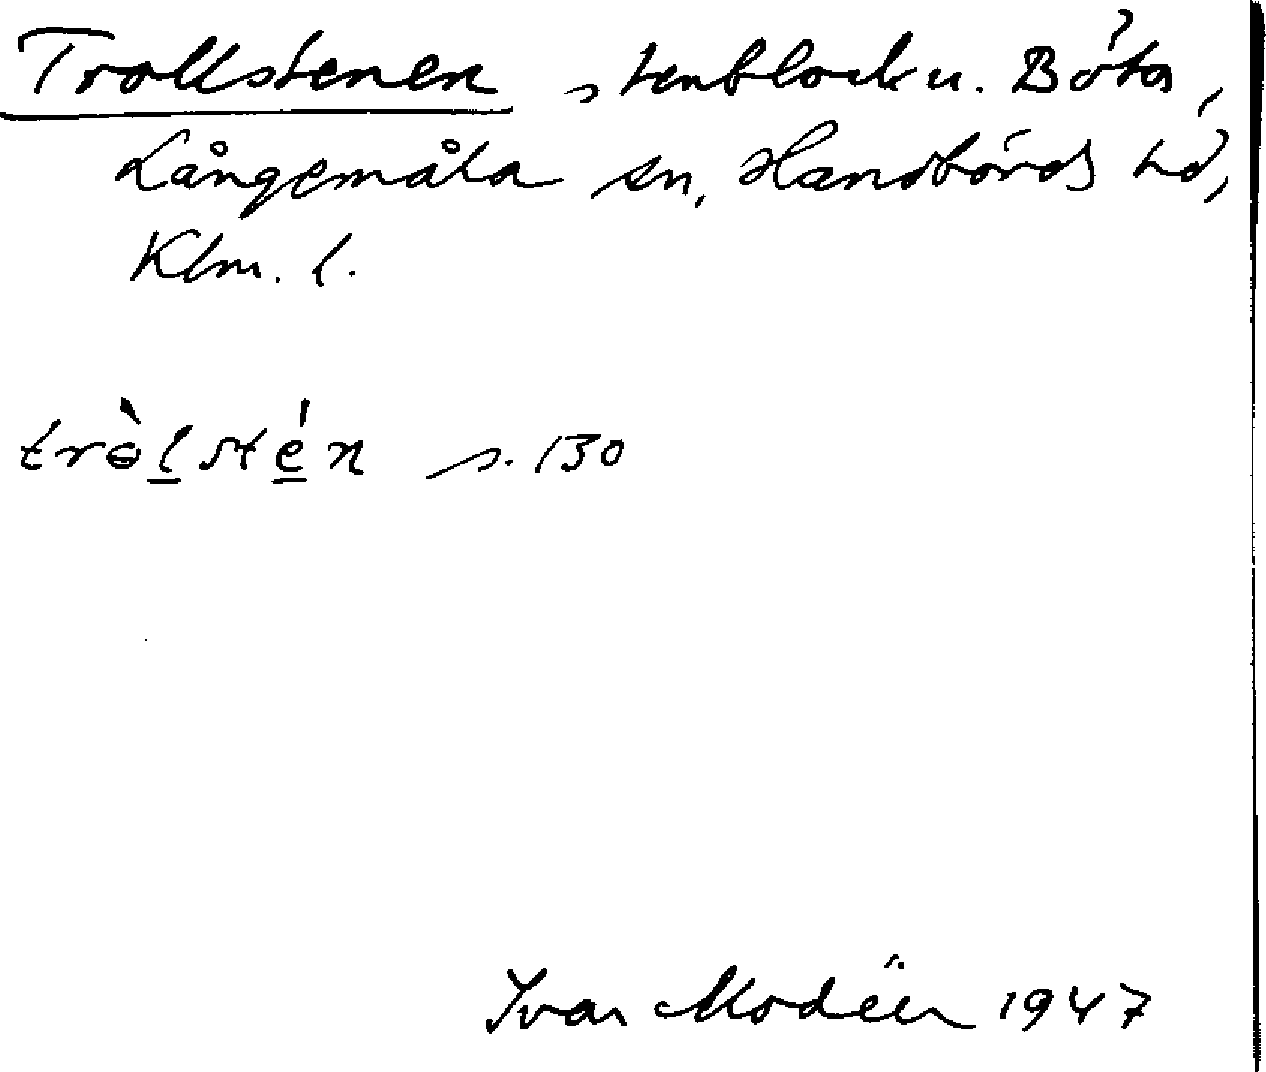 Trollstenen, stenblock u. Böta,
Långemåla sn, Handbörds hd,
Klm. l.
trɵ̀lstén s. 130
Ivar Modéer 1947